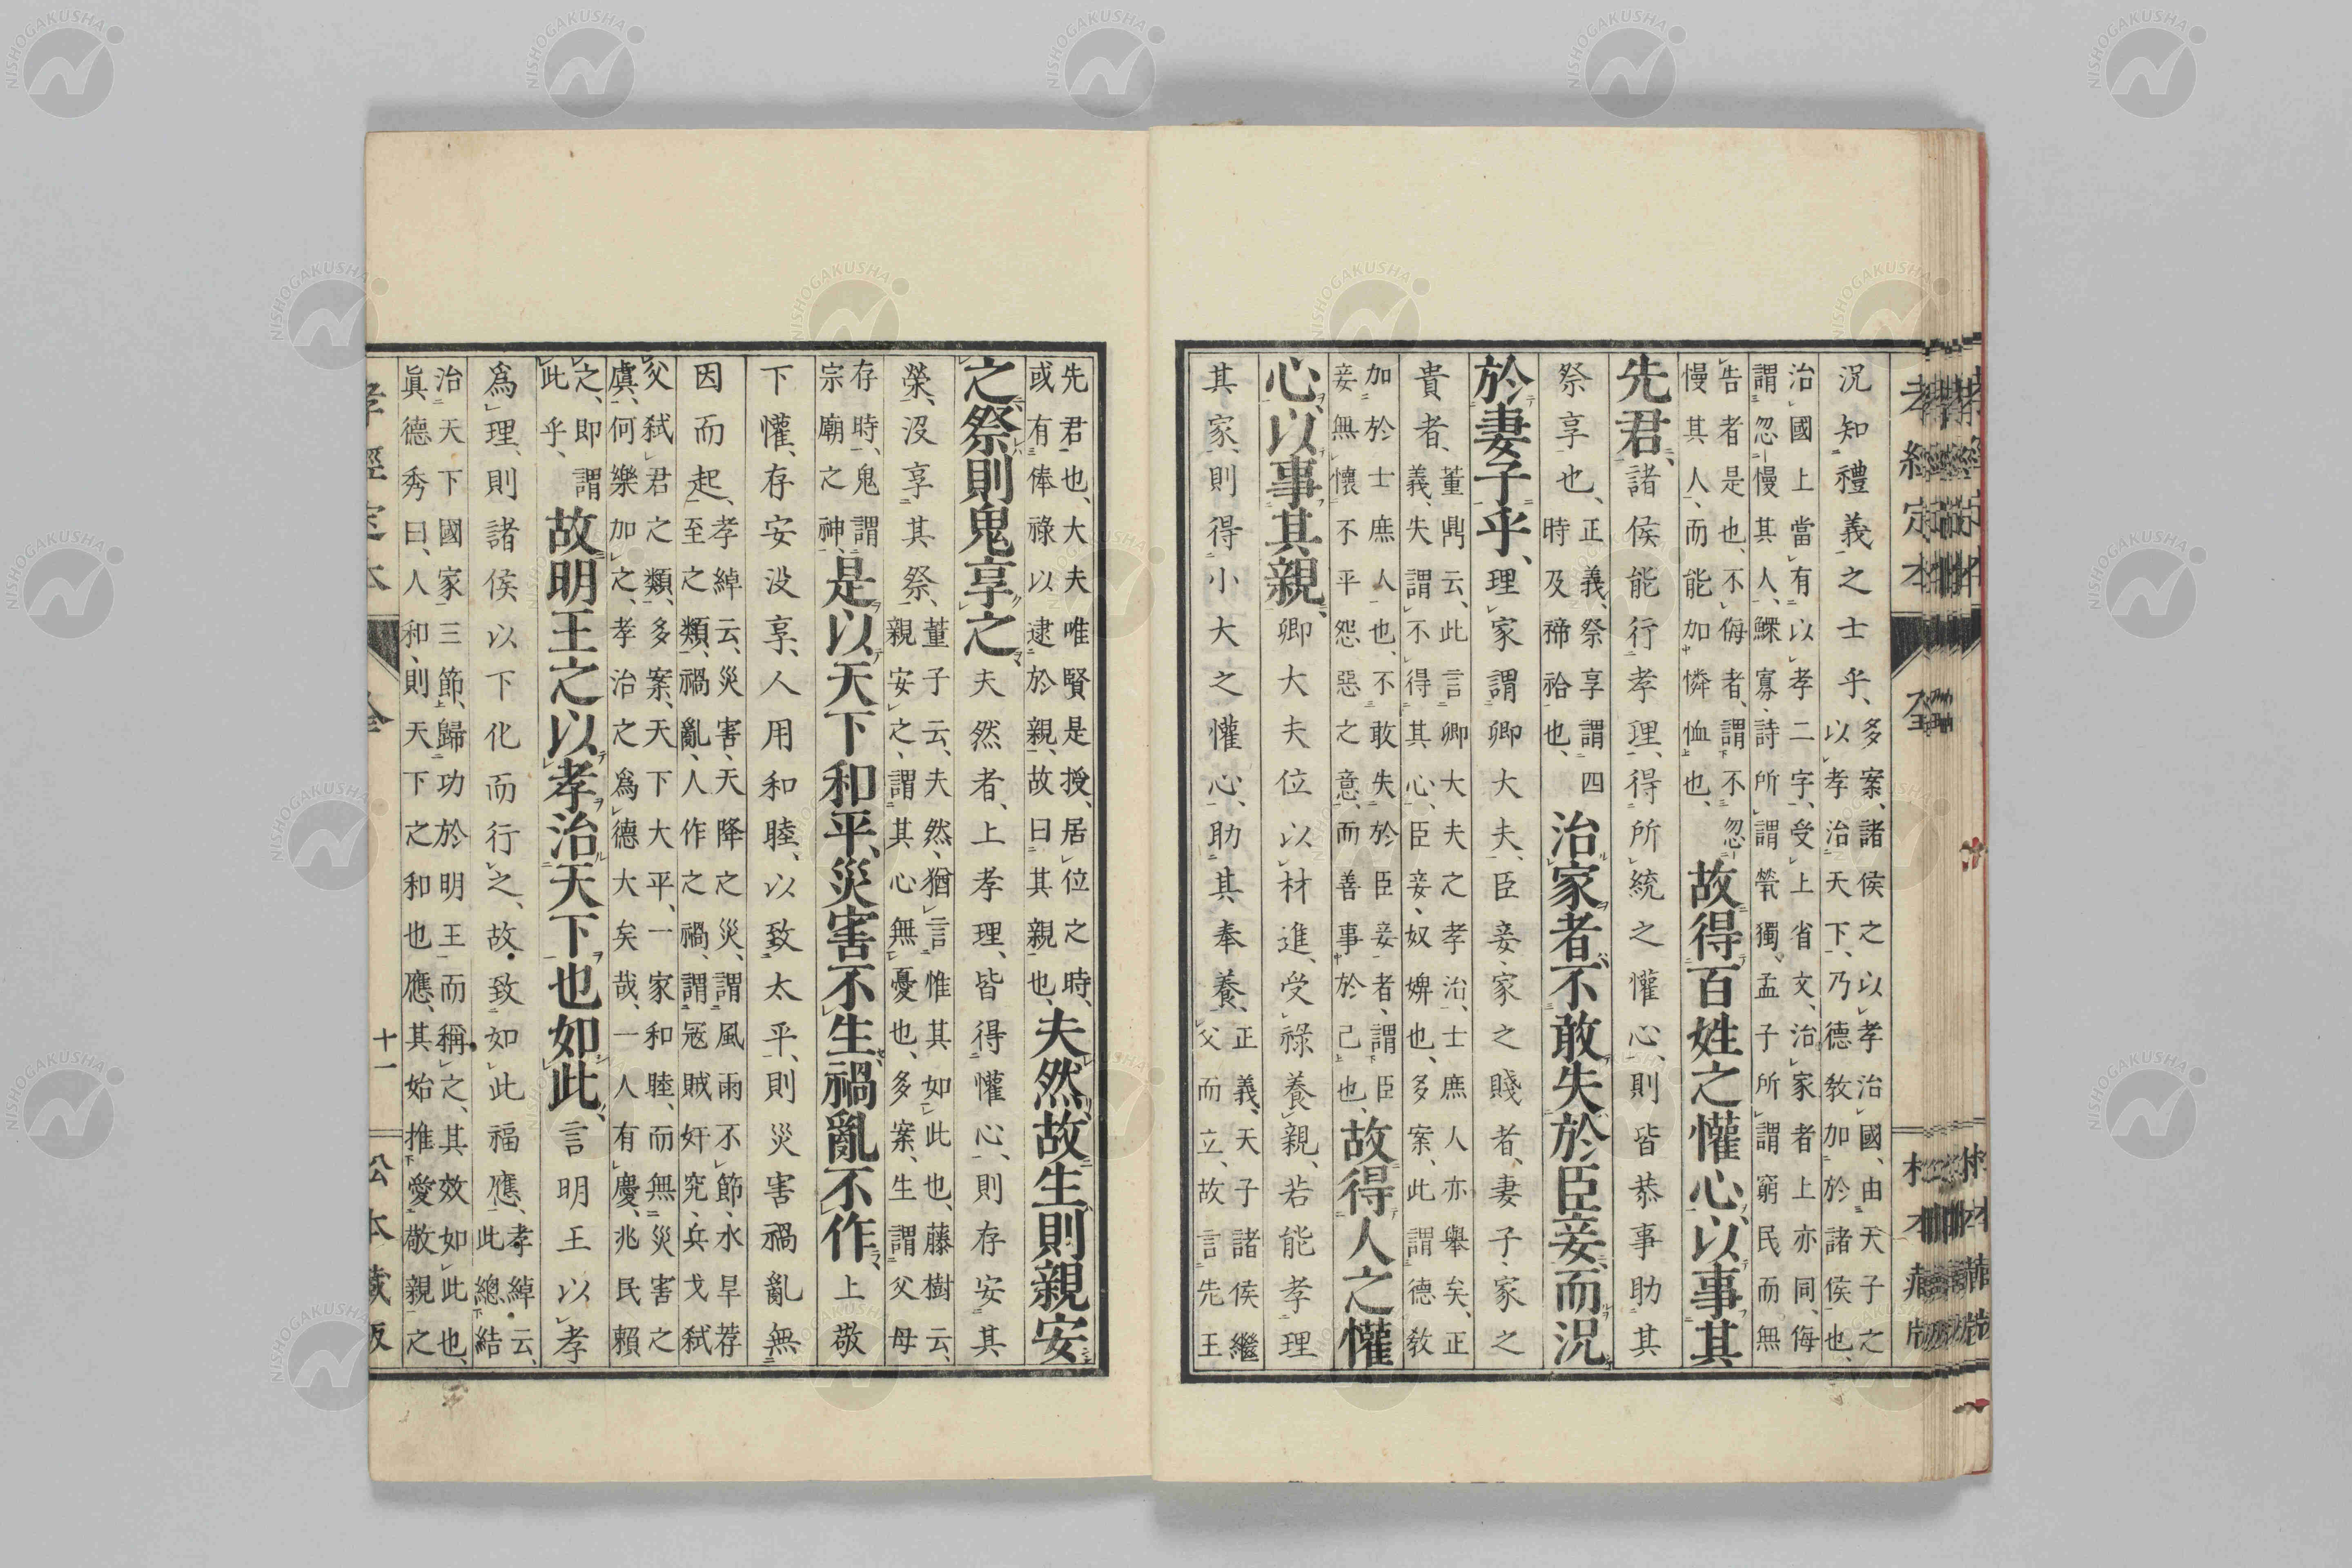 孝經定本
況知禮義之士乎、
多案、諸侯之以孝治國、由天子之
以孝治天下、乃德敎加於諸侯也、
治國上當有以孝二字、受上省文、治家者上亦同、侮
謂忽慢其人、鰥寡、詩所謂煢獨、孟子所謂窮民而無
告者是也、不侮者、謂不忽
慢其人、而能加憐恤也、
故得百姓之懽心、以事其
先君、諸侯能行孝理、得所統之懽心、則皆恭事助其
祭享也、
正義、祭享謂四
時及禘祫也、
治家者、不敢失於臣妾、而況
於妻子乎、理家謂卿大夫、臣妾、家之賤者、妻子、家之
貴者、
董鼎云、此言卿大夫之孝治、士庶人亦擧矣、正
義、失謂不得其心、臣妾、奴婢也、多案、此謂德敎
加於士庶人也、不敢失於臣妾者、謂臣
妾無懷不平怨惡之意、而善事於己也、
故得人之懽
心、以事其親、卿大夫位以材進、受祿養親、若能孝理
其家、則得小大之懽心、助其奉養、
正義、天子諸侯繼
父而立、故言先王
先君也、大夫唯賢是授、居位之時、
或有俸祿以逮於親、故曰其親也、
夫然、故生則親安
之、祭則鬼享之、夫然者、上孝理、皆得懽心、則存安其
榮、沒享其祭、
董子云、夫然、猶言惟其如此也、藤樹云、
親安之、謂其心無憂也、多案、生謂父母
存時、鬼謂
宗廟之神、
是以天下和平、災害不生、禍亂不作、上敬
下懽、存安沒享、人用和睦、以致太平、則災害禍亂無
因而起、
孝綽云、災害、天降之災、謂風雨不節、水旱荐
至之類、禍亂、人作之禍、謂寇賊奸宄、兵戈弑
父弑君之類、多案、天下大平、一家和睦、而無災害之
虞、何樂加之、孝治之爲德大矣哉、一人有慶、兆民賴
之、卽謂
此乎、
故明王之以孝治天下也如此、言明王以孝
爲理、則諸侯以下化而行之、故致如此福應、
孝綽云、
此總結
治天下國家三節、歸功於明王而稱之、其效如此也、
眞德秀曰、人和、則天下之和也應、其始推愛敬親之
孝經定本 全 十一 松本藏版